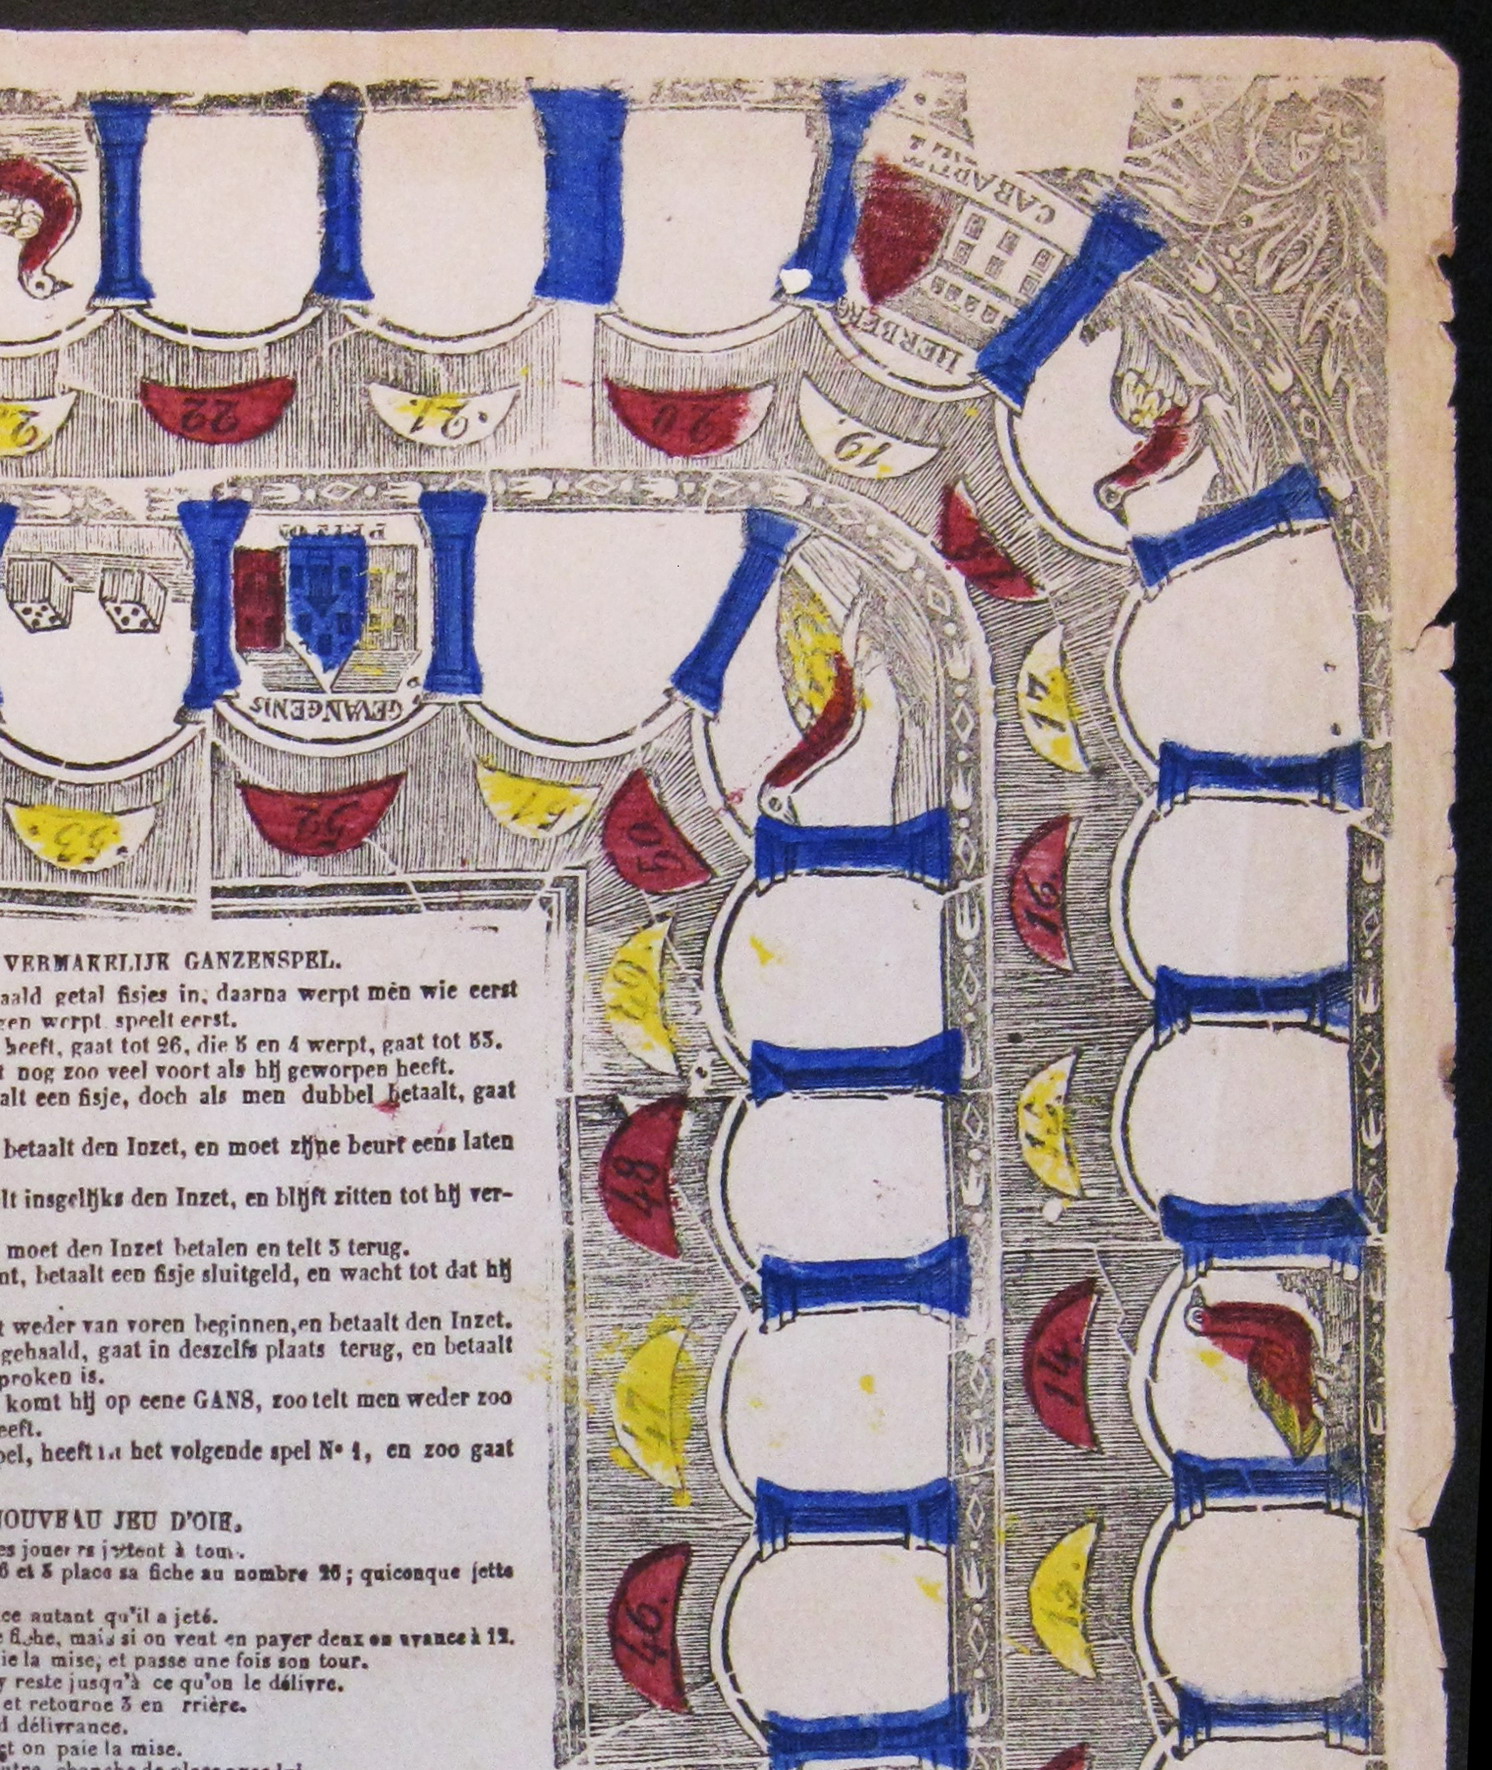 CABARET
HERBERG
22
21.
20
19.
18
PRISON
GEVANGENIS
17.
53.
52
51
50
16.
49
15.
48
14.
47
13.
46.
VERMAKELIJK GANZENSPEL.
aald getal fisjes in, daarna werpt men wie eerst
gen werpt speelt eerst.
heeft, gaat tot 26, die 5 en 4 werpt, gaat tot 53.
t nog zoo veel voort als hij geworpen heeft.
alt een fisje, doch als men dubbel betaalt, gaat
betaalt den Inzet, en moet zijne beurt eens laten
lt insgelijks den Inzet, en blijft zitten tot hij ver-
moet den Inzet betalen en telt 3 terug.
nt, betaalt een fisje sluitgeld, en wacht tot dat hij
t weder van voren beginnen, en betaalt den Inzet.
gehaald, gaat in deszelfs plaats terug, en betaalt
proken is.
komt hij op eene GANS, zoo telt men weder zoo
eeft.
pel, heeft in het volgende spel No 1, en zoo gaat
NOUVEAU JEU D'OIE,
es jouers jettent à tour.
6 et 3 place sa fiche au nombre 26; quiconque jette
ce autant qu'il a jeté.
e fiche, mais si on veut en payer deux on avance à 12.
ie la mise, et passe une fois son tour.
y reste jusqu'à ce qu'on le délivre.
et retourne 3 en rrière.
d délivrance.
ct on paie la mise.